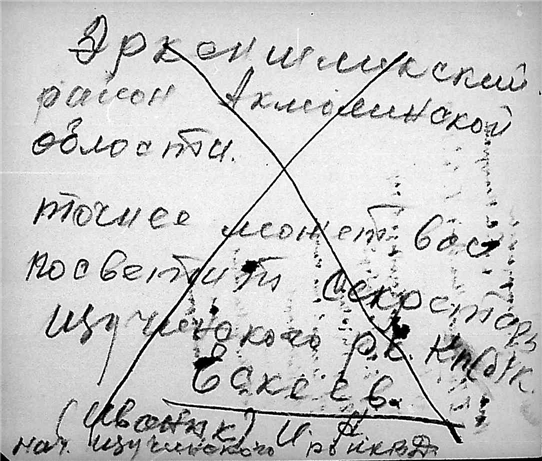 Эркеншиликский
район Акмолинской
области.
точнее может вас
посветить секретарь
щучинского р.к. КП(б)К.
Есксев.
(Иваник)
нач. щучинского РО НКВД.